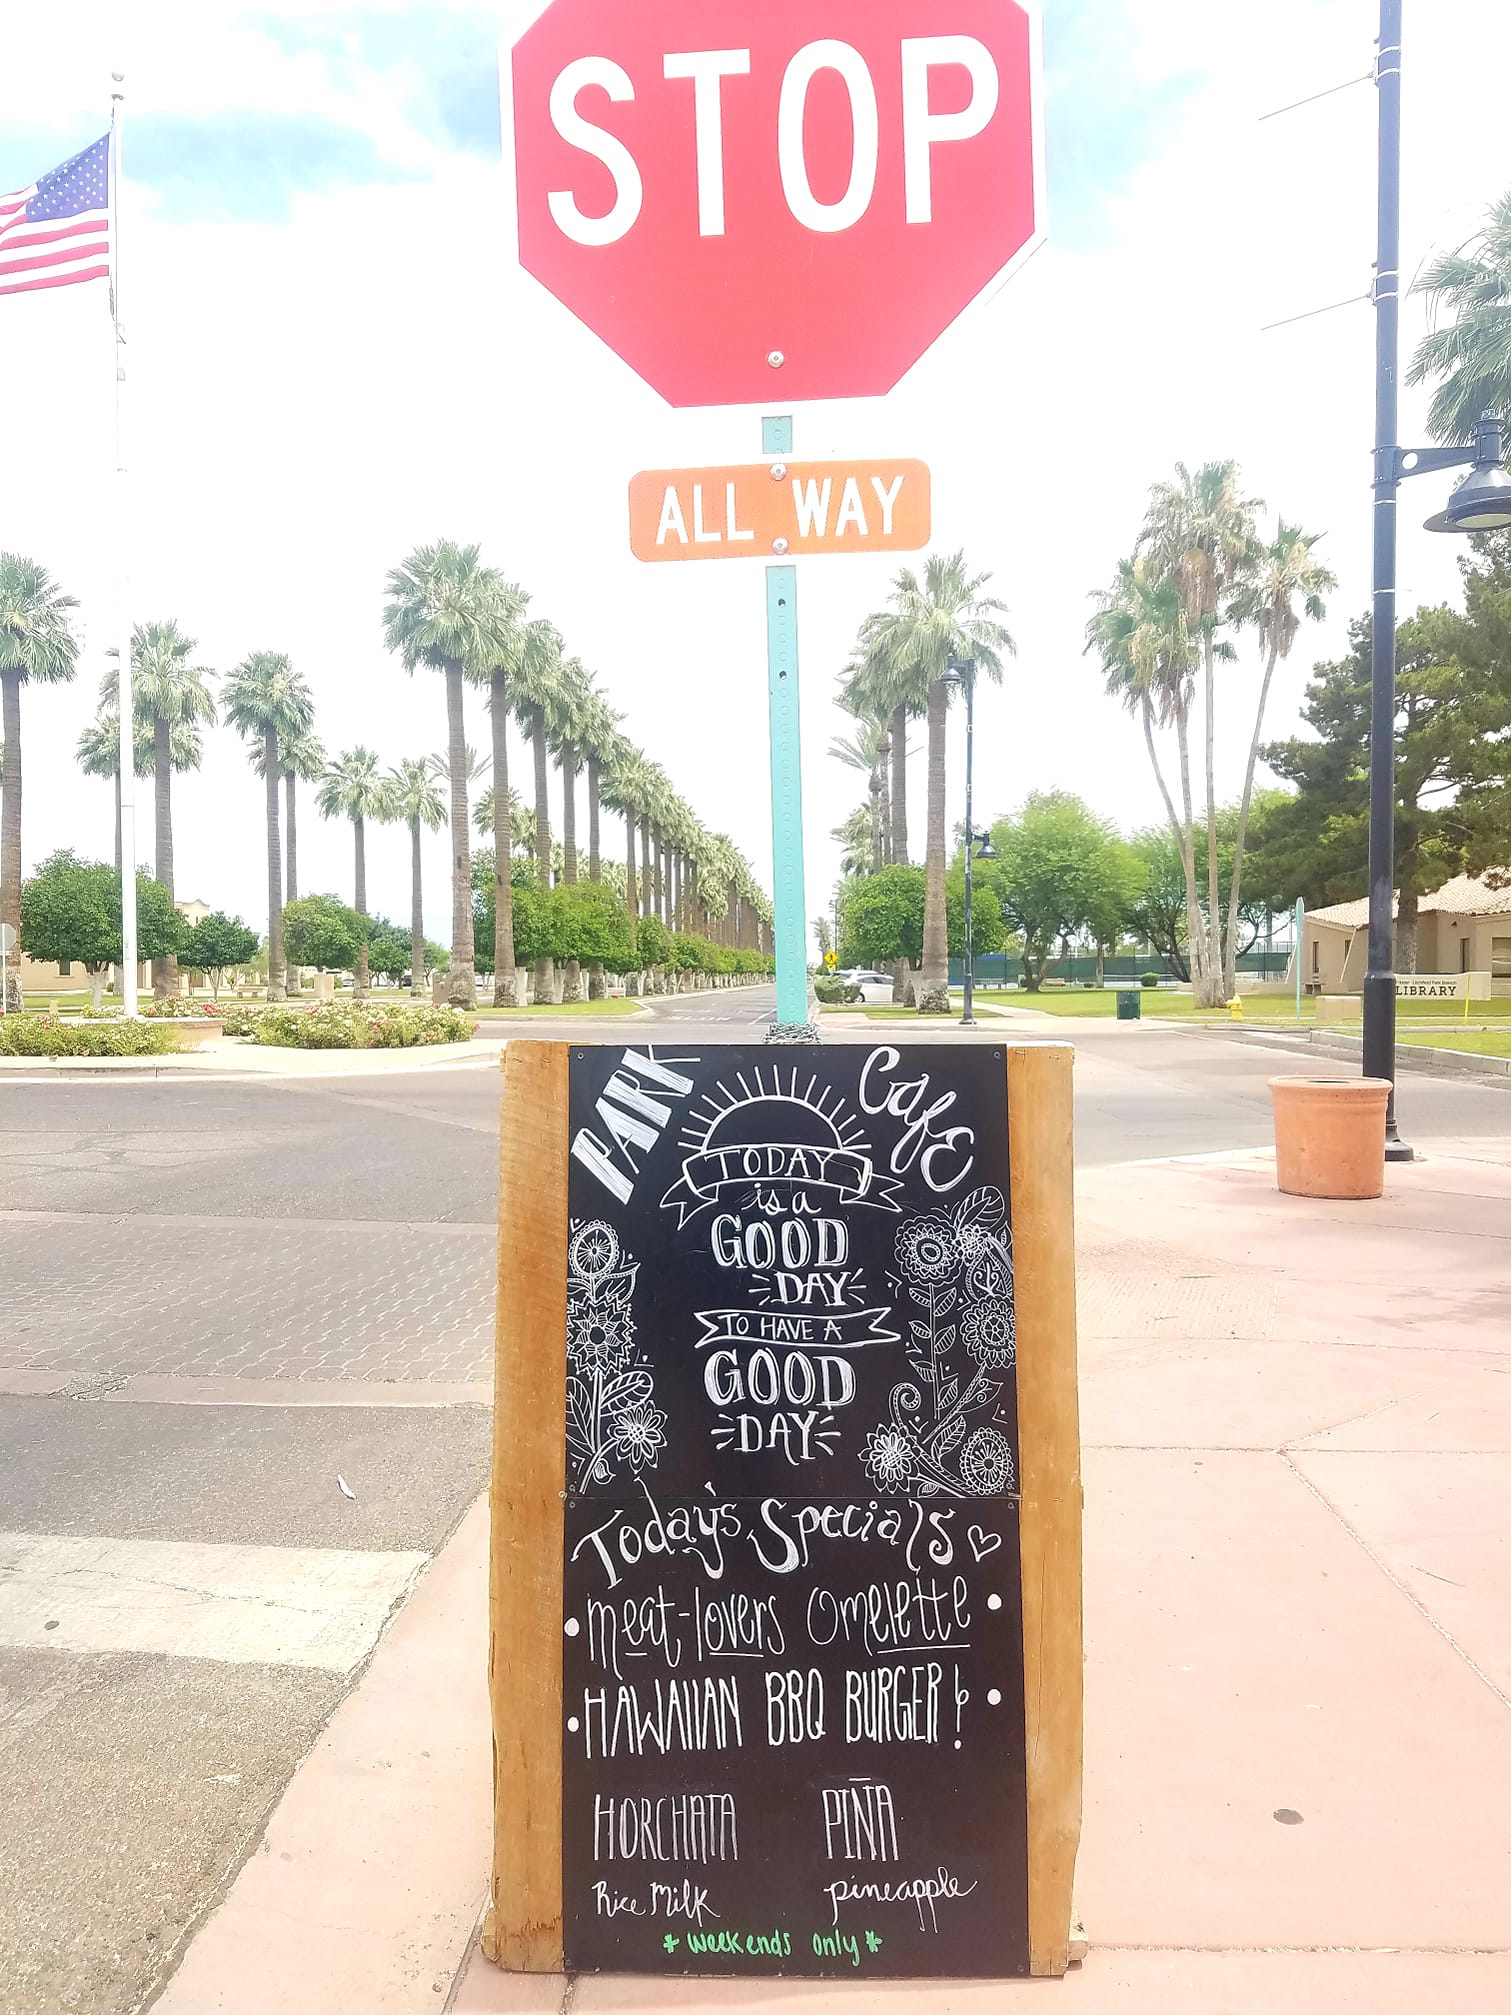 STOP
ALL WAY
LIBRARY
PARK CafE
TODAY
is a
GOOD
DAY
TO HAVE A
GOOD
DAY
Today's Specials
Meat-lovers Omelette
HAWAIIAN BBQ BURGER!
HORCHATA PIÑA
Rice Milk pineapple
* weekends only *